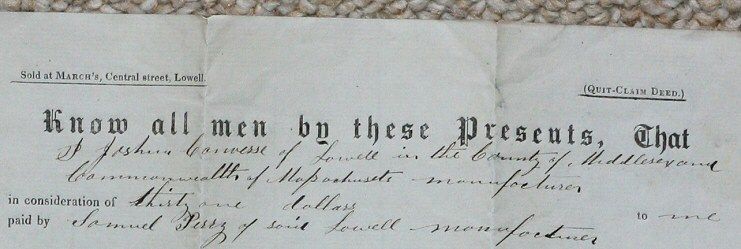 Sold at MARCH'S, Central street, Lowell.
(QUIT-CLAIM DEED.)
Know all men by these Presents, That
I Joshua Converse of Lowell in the County of Middlesex and
Commonwealth of Massachusetts manufacturer
in consideration of thirty one dollars
paid by Samuel Perry of said Lowell manufacturer to me